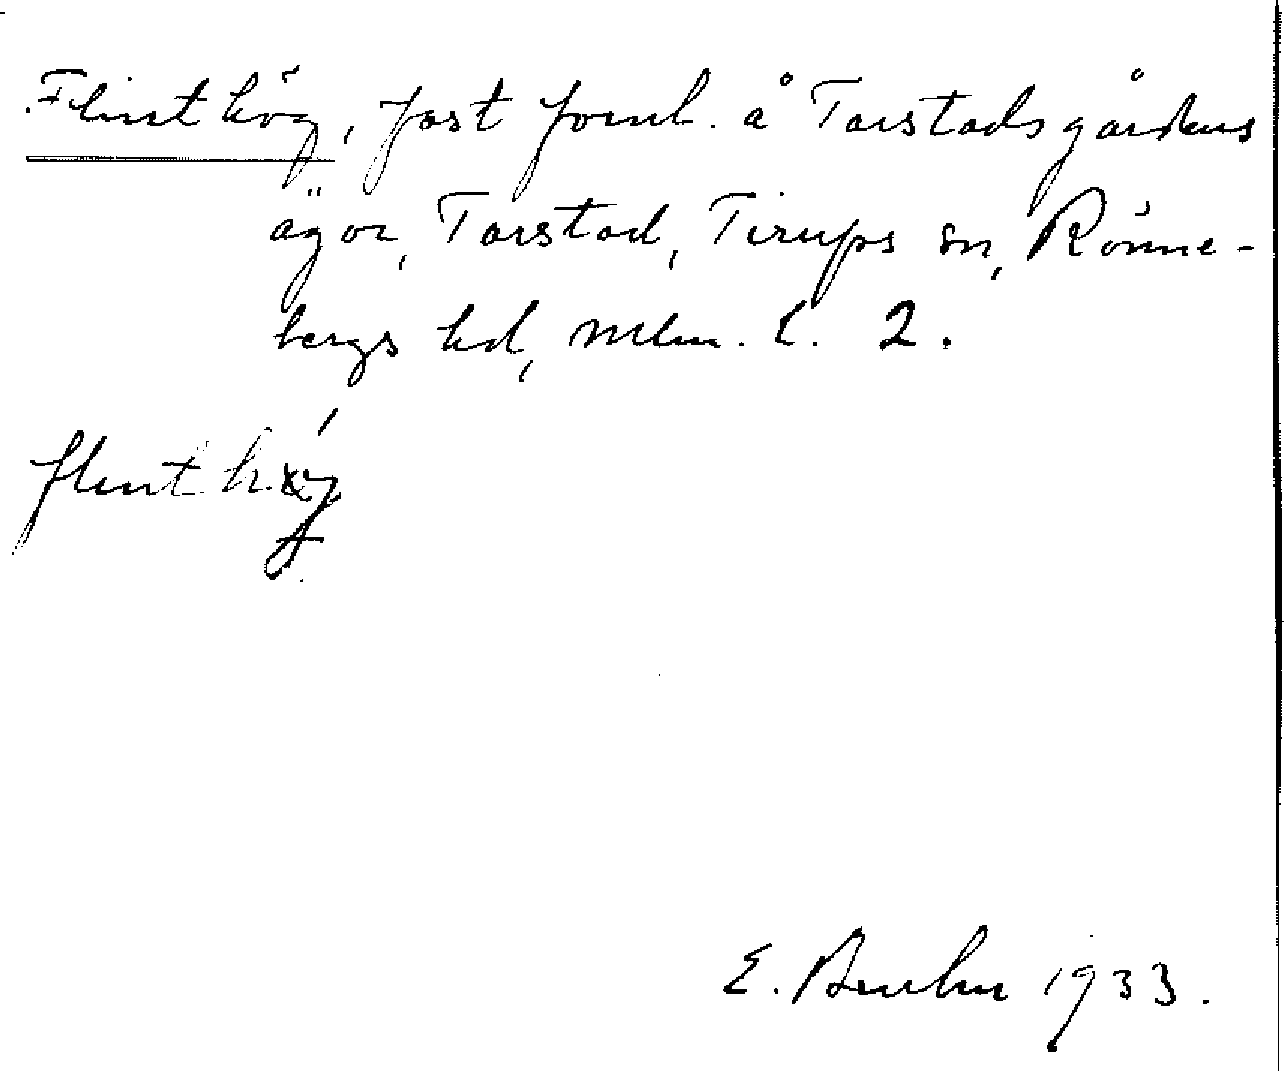 Flinthög, fast forml. å Tarstadsgårdens
ägor, Tarstad, Tirups sn, Rönne-
bergs hd, Mlm. l. 2.
E. Bruhn 1933.